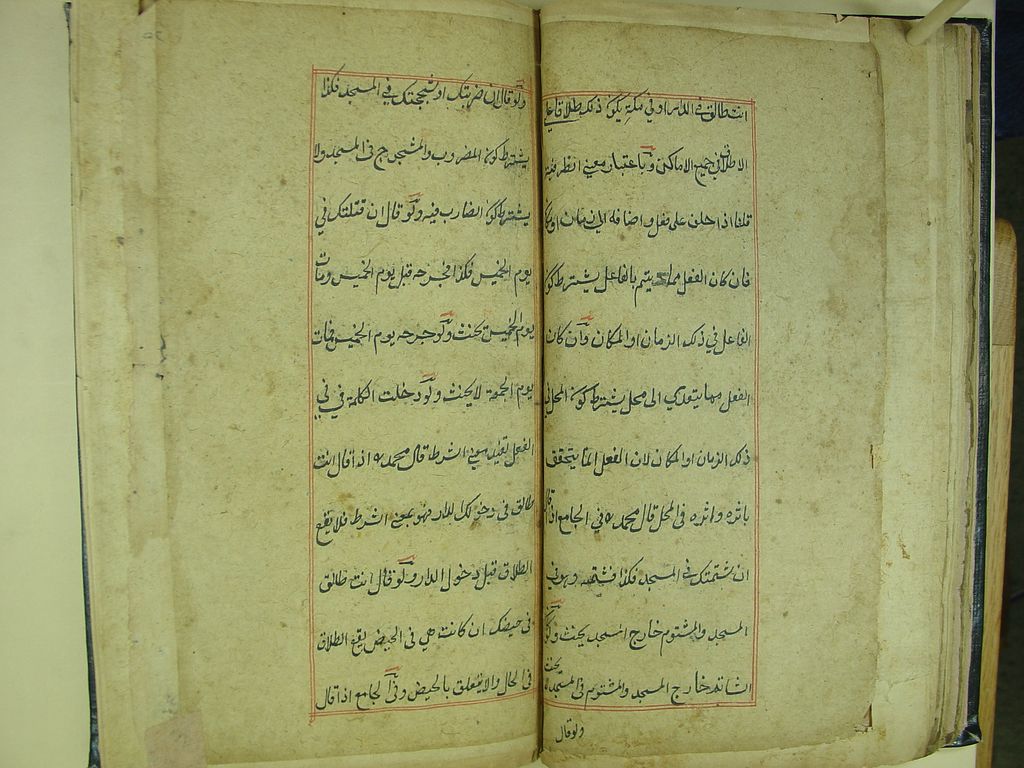 انت طالق في الدار او في مكة يكون ذلك طلاقا على
الاطلاق في جميع الاماكن وباعتبار معنى الظرفية
قلنا اذا حلف على فعل واضافه الى زمان او مكان
فان كان الفعل مما يتم بالفاعل يشترط كون
الفاعل في ذلك الزمان او المكان وان كان
الفعل مما يتعدي الى محل يشترط كون المحل في
ذلك الزمان او المكان لان الفعل انما يتحقق
باثره واثره في المحل قال محمد ره في الجامع اذا قال
ان شتمتك في المسجد فكذا فشتمه وهو في
المسجد والمشتوم خارج المسجد يحنث ولو كان
الشاتم خارج المسجد والمشتوم في المسجد لا يحنث
ولو قال
ولو قال ان ضربتك او شججتك في المسجد فكذا
يشترط كون المضروب والمشجوج في المسجد ولا
يشترط كون الضارب فيه ولو قال ان قتلتك في
يوم الخميس فكذا فجرحه قبل يوم الخميس ومات
يوم الخميس يحنث ولو جرحه يوم الخميس فمات
يوم الجمعة لا يحنث ولو دخلت الكلمة في في
الفعل تفيد معنى الشرط قال محمد ره اذا قال انت
طالق في دخولك الدار فهو بمعنى الشرط فلا يقع
الطلاق قبل دخول الدار ولو قال انت طالق
في حيضتك ان كانت هي في الحيض يقع الطلاق
في الحال والا يتعلق بالحيض وفي الجامع اذا قال